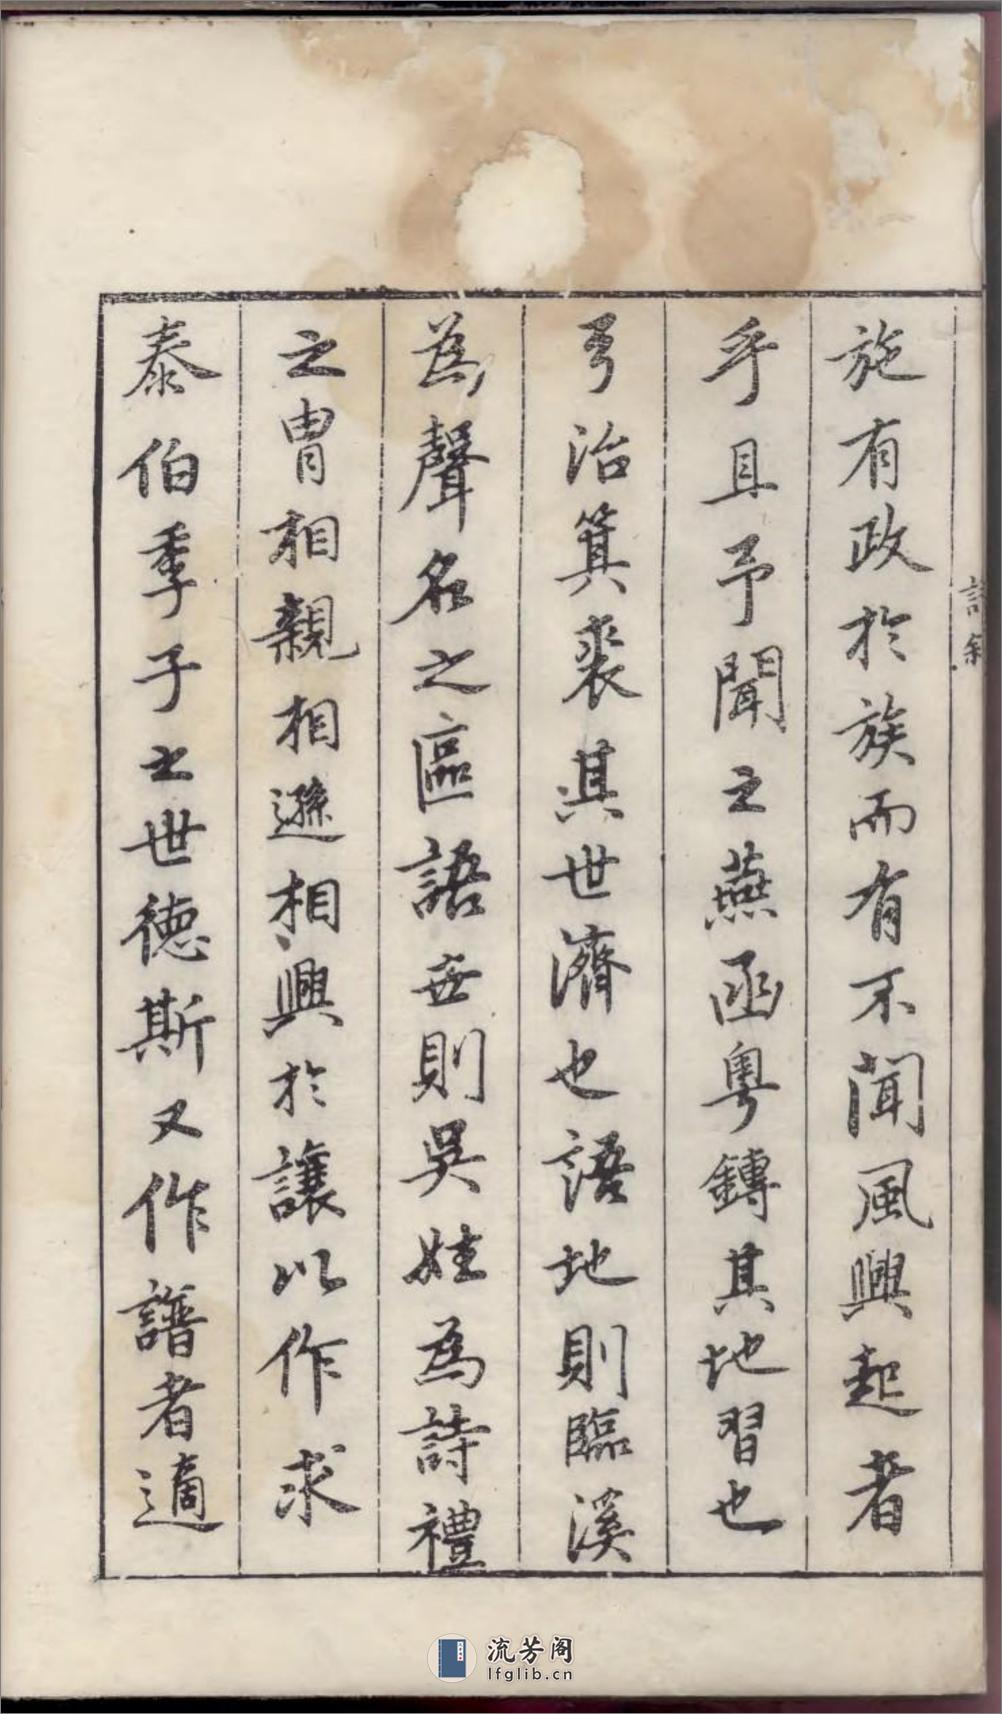 施有政於族而有不聞風興起者
乎且予聞之燕函粵鏄其地習也
弓治箕裘其世濟也語地則臨溪
為聲名之區語世則吳姓為詩禮
之冑相親相遜相興於讓以作求
泰伯季子之世德斯又作譜者適
流芳阁
lfglib.cn